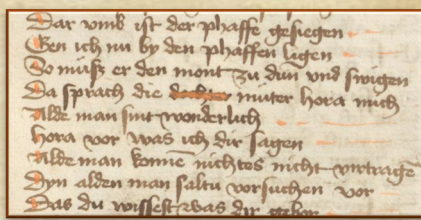 Dar vmb ist der phaffe gesiegen
Gen ich nu by den phaffen ligen
So musz er den mont zu dun vnd swigen
Da sprach die muter hora mich
Alde man sint wonderlich
hora vor was ich dir sagen
Alde man konnen nichtes nicht vertrage
Dyn alden man saltu vorsuchen vor
Das du wissest was dir gehor